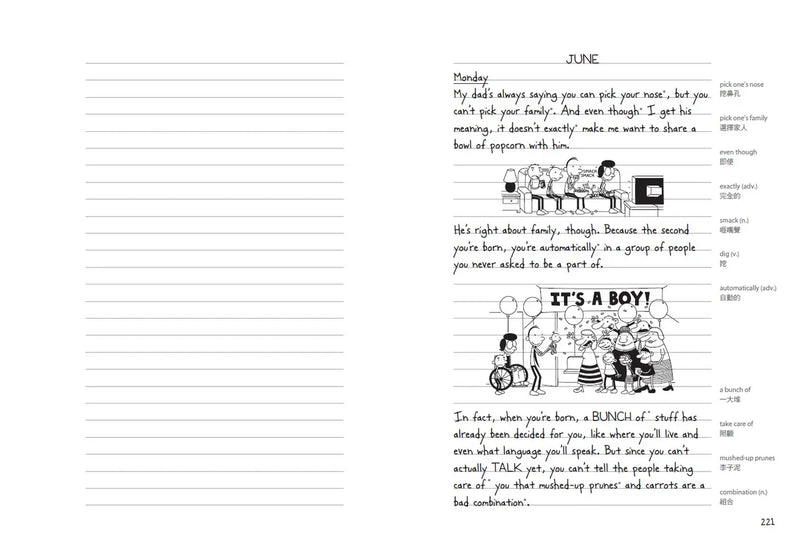 JUNE
Monday
My dad's always saying you can pick your nose*, but you
can't pick your family*. And even though* I get his
meaning, it doesn't exactly* make me want to share a
bowl of popcorn with him.
SMACK
SMACK
He's right about family, though. Because the second
you're born, you're automatically* in a group of people
you never asked to be a part of.
IT'S A BOY!
In fact, when you're born, a BUNCH of* stuff has
already been decided for you, like where you'll live and
even what language you'll speak. But since you can't
actually TALK yet, you can't tell the people taking
care of* you that mushed-up prunes* and carrots are a
bad combination*.
pick one's nose
挖鼻孔
pick one's family
選擇家人
even though
即使
exactly (adv.)
完全的
smack (n.)
咂嘴聲
dig (v.)
挖
automatically (adv.)
自動的
a bunch of
一大堆
take care of
照顧
mushed-up prunes
李子泥
combination (n.)
組合
221